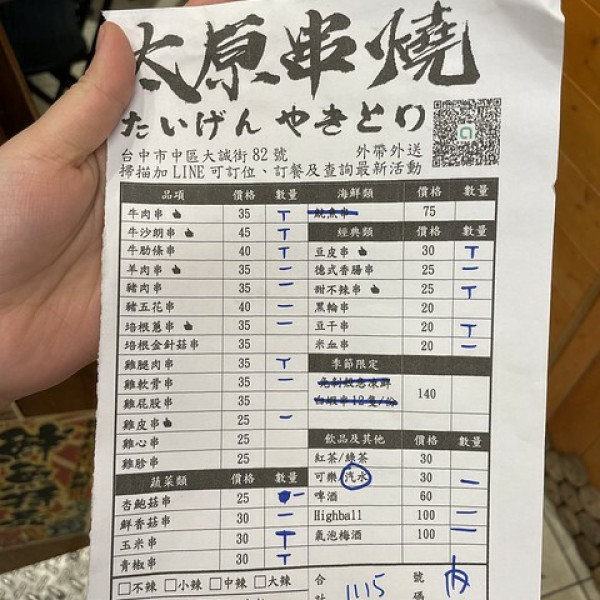 太原串燒
たいげん やきとり
台中市中區大誠街82號 外帶外送
掃描加LINE可訂位、訂餐及查詢最新活動
品項 價格 數量
牛肉串 35 T
牛沙朗串 45 T
牛肋條串 40 T
羊肉串 35 一
豬肉串 35 一
豬五花串 40 一
培根蔥串 35 一
培根金針菇串 35
雞腿肉串 35 T
雞軟骨串 35 一
雞屁股串 35
雞皮串 25 一
雞心串 25
雞胗串 25
蔬菜類 價格 數量
杏鮑菇串 25 一
鮮香菇串 30 一
玉米串 30 T
青椒串 30 T
不辣 小辣 中辣 大辣
海鮮類 價格 數量
魷魚串 75
經典類 價格 數量
豆皮串 30 T
德式香腸串 25 一
甜不辣串 25 T
黑輪串 20
豆干串 20 T
米血串 20 一
季節限定
免剝殼急凍鮮
白蝦串12隻/份 140
飲品及其他 價格 數量
紅茶/綠茶 30
可樂 汽水 30 一
啤酒 60
Highball 100 二
氣泡梅酒 100
合計 1115 號碼 內